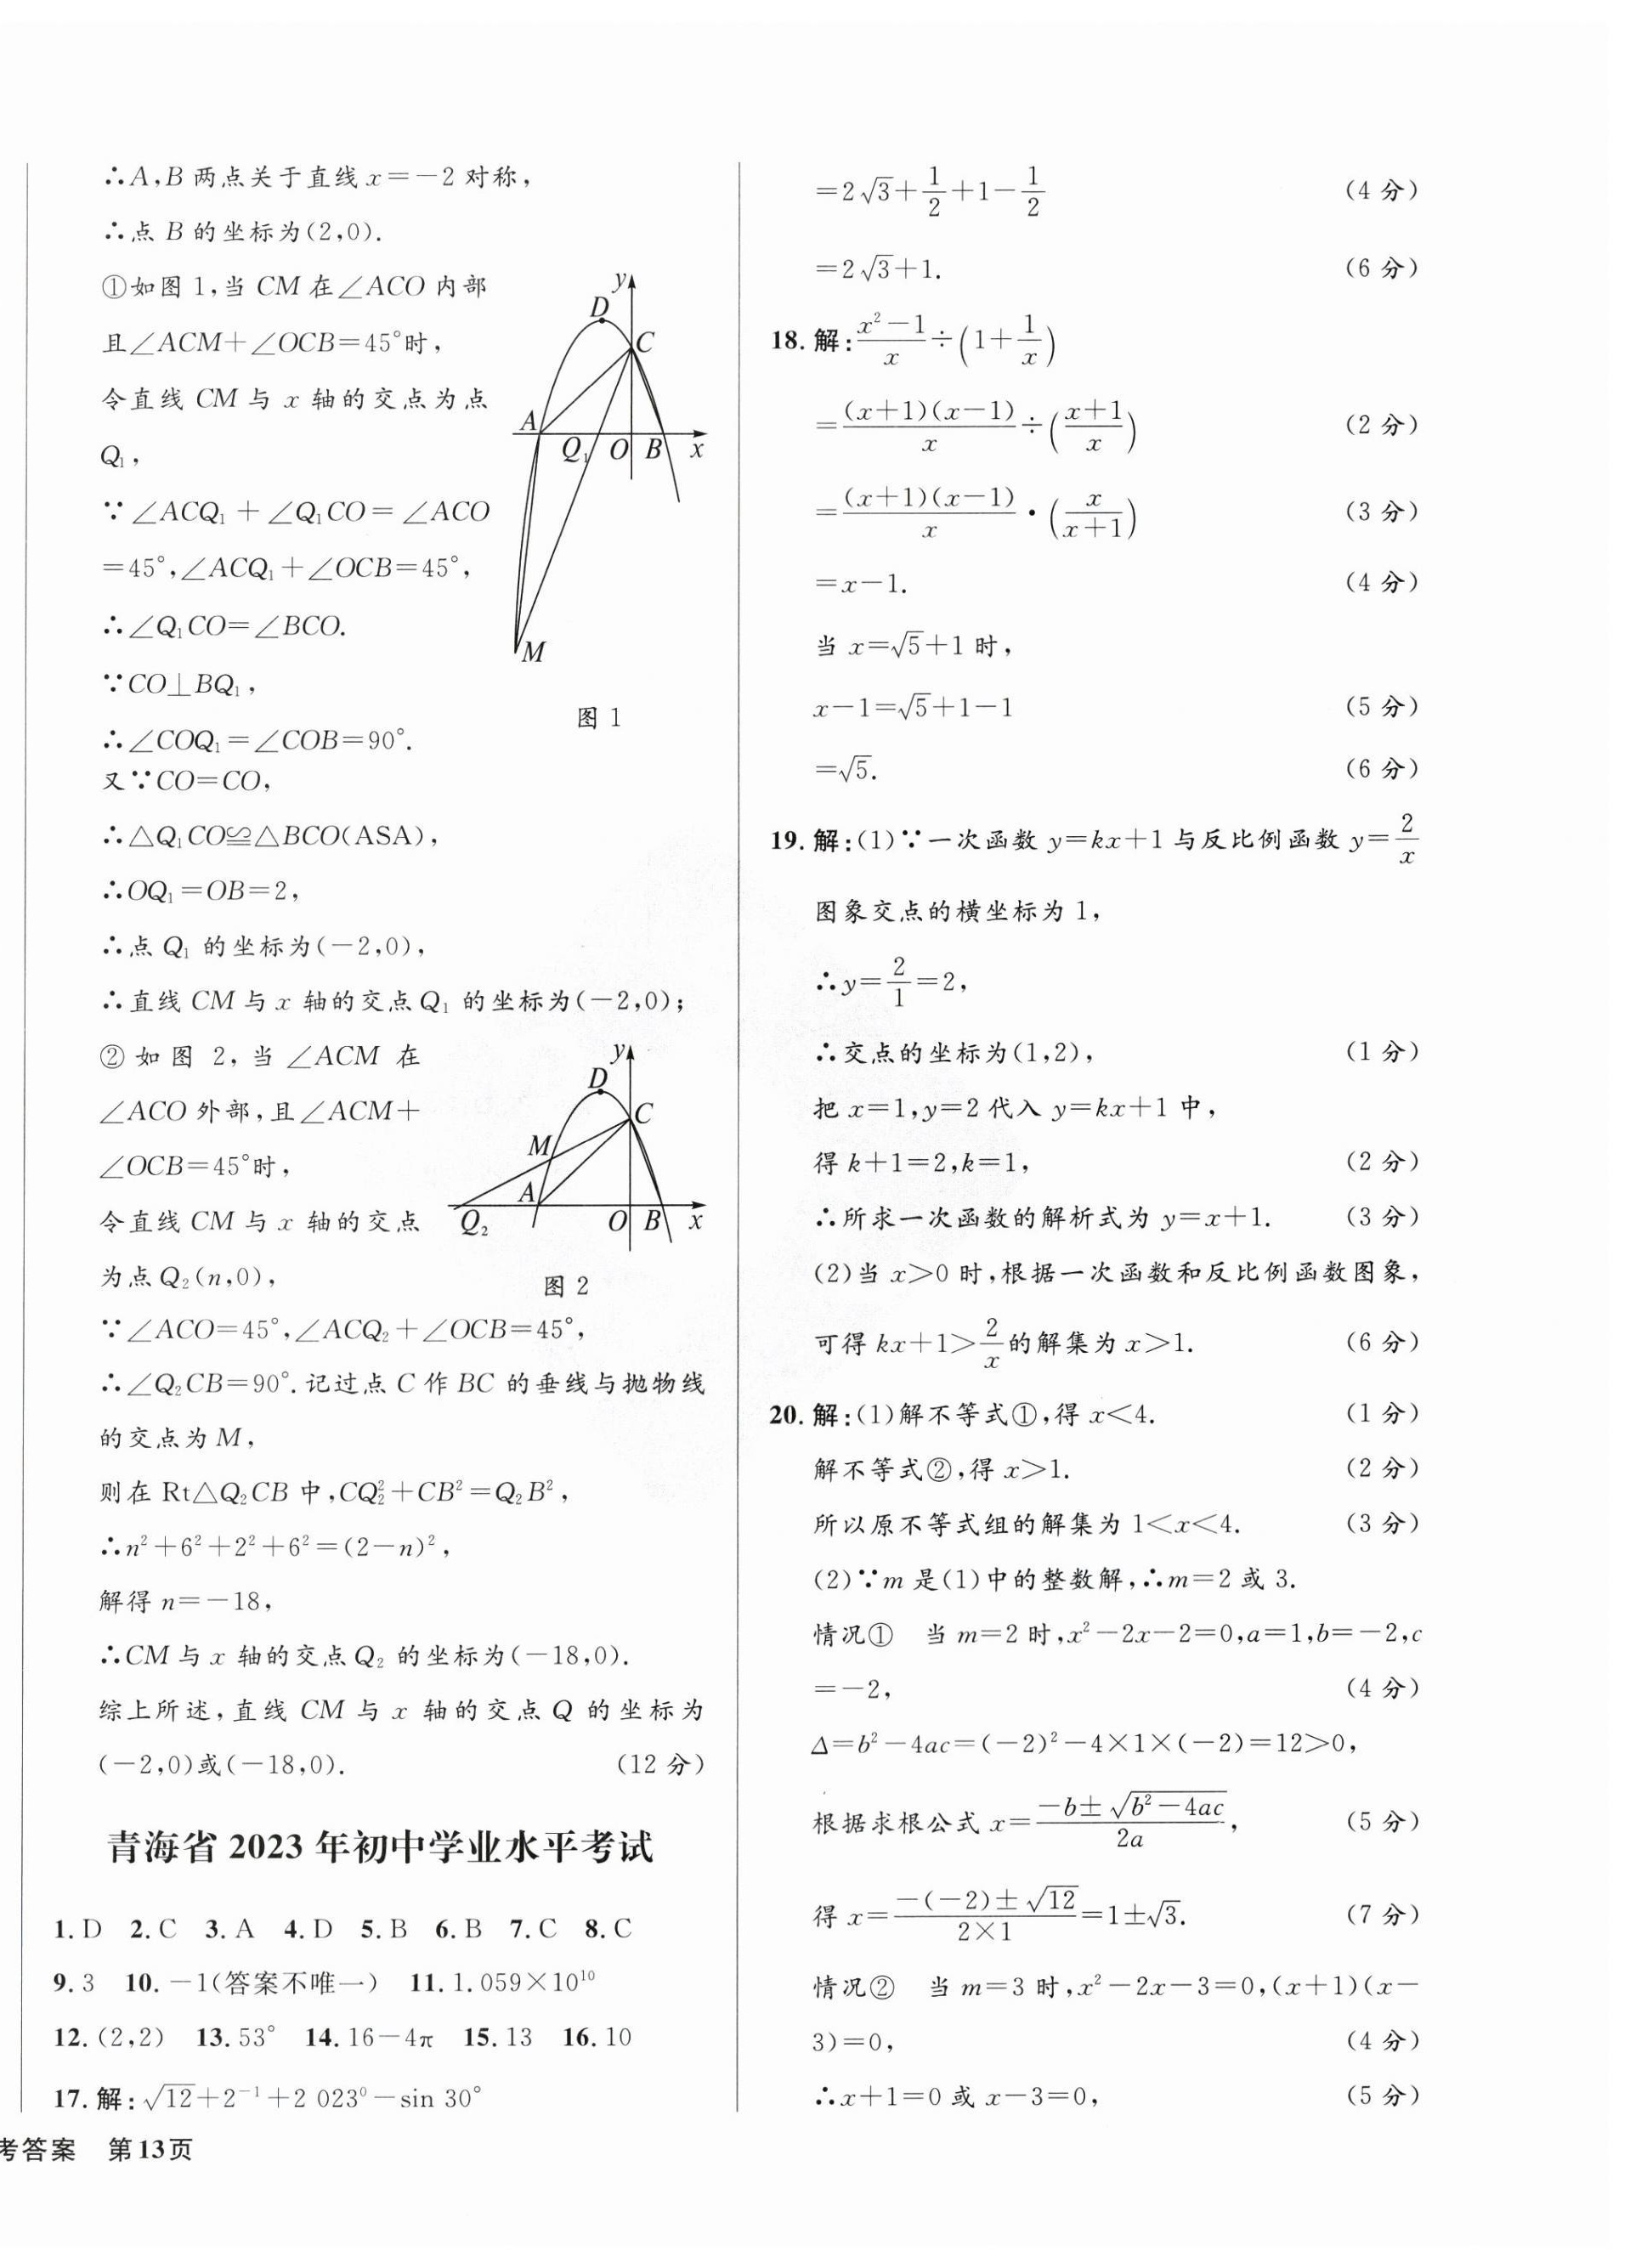 ∴A,B 两点关于直线 x=-2 对称,
∴点 B 的坐标为(2,0).
①如图 1,当 CM 在∠ACO 内部
且∠ACM+∠OCB=45°时,
令直线 CM 与 x 轴的交点为点
Q₁,
∵∠ACQ₁+∠Q₁CO=∠ACO
=45°,∠ACQ₁+∠OCB=45°,
∴∠Q₁CO=∠BCO.
∵CO⊥BQ₁,
∴∠COQ₁=∠COB=90°.
y
D
C
A
Q₁
O
B
x
M
图 1
又∵CO=CO,
∴△Q₁CO≌△BCO(ASA),
∴OQ₁=OB=2,
∴点 Q₁ 的坐标为(-2,0),
∴直线 CM 与 x 轴的交点 Q₁ 的坐标为(-2,0);
② 如图 2,当∠ACM 在
∠ACO 外部,且∠ACM+
∠OCB=45°时,
令直线 CM 与 x 轴的交点
为点 Q₂(n,0),
y
D
C
M
A
Q₂
O
B
x
图 2
∵∠ACO=45°,∠ACQ₂+∠OCB=45°,
∴∠Q₂CB=90°.记过点 C 作 BC 的垂线与抛物线
的交点为 M,
则在 Rt△Q₂CB 中,CQ₂²+CB²=Q₂B²,
∴n²+6²+2²+6²=(2-n)²,
解得 n=-18,
∴CM 与 x 轴的交点 Q₂ 的坐标为(-18,0).
综上所述,直线 CM 与 x 轴的交点 Q 的坐标为
(-2,0)或(-18,0). (12 分)
青海省 2023 年初中学业水平考试
1. D 2. C 3. A 4. D 5. B 6. B 7. C 8. C
9. 3 10. -1(答案不唯一) 11. 1.059×10¹⁰
12. (2,2) 13. 53° 14. 16-4π 15. 13 16. 10
17. 解:√12+2⁻¹+2 023⁰-sin 30°
=2√3+1/2+1-1/2 (4 分)
=2√3+1. (6 分)
18. 解:(x²-1)/x÷(1+1/x)
=(x+1)(x-1)/x÷((x+1)/x) (2 分)
=(x+1)(x-1)/x·(x/(x+1)) (3 分)
=x-1. (4 分)
当 x=√5+1 时,
x-1=√5+1-1 (5 分)
=√5. (6 分)
19. 解:(1)∵一次函数 y=kx+1 与反比例函数 y=2/x
图象交点的横坐标为 1,
∴y=2/1=2,
∴交点的坐标为(1,2), (1 分)
把 x=1,y=2 代入 y=kx+1 中,
得 k+1=2,k=1, (2 分)
∴所求一次函数的解析式为 y=x+1. (3 分)
(2)当 x>0 时,根据一次函数和反比例函数图象,
可得 kx+1>2/x 的解集为 x>1. (6 分)
20. 解:(1)解不等式①,得 x<4. (1 分)
解不等式②,得 x>1. (2 分)
所以原不等式组的解集为 1<x<4. (3 分)
(2)∵m 是(1)中的整数解,∴m=2 或 3.
情况① 当 m=2 时,x²-2x-2=0,a=1,b=-2,c
=-2, (4 分)
Δ=b²-4ac=(-2)²-4×1×(-2)=12>0,
根据求根公式 x=(-b±√(b²-4ac))/2a, (5 分)
得 x=(-(-2)±√12)/(2×1)=1±√3. (7 分)
情况② 当 m=3 时,x²-2x-3=0,(x+1)(x-
3)=0, (4 分)
∴x+1=0 或 x-3=0, (5 分)
考答案 第13页